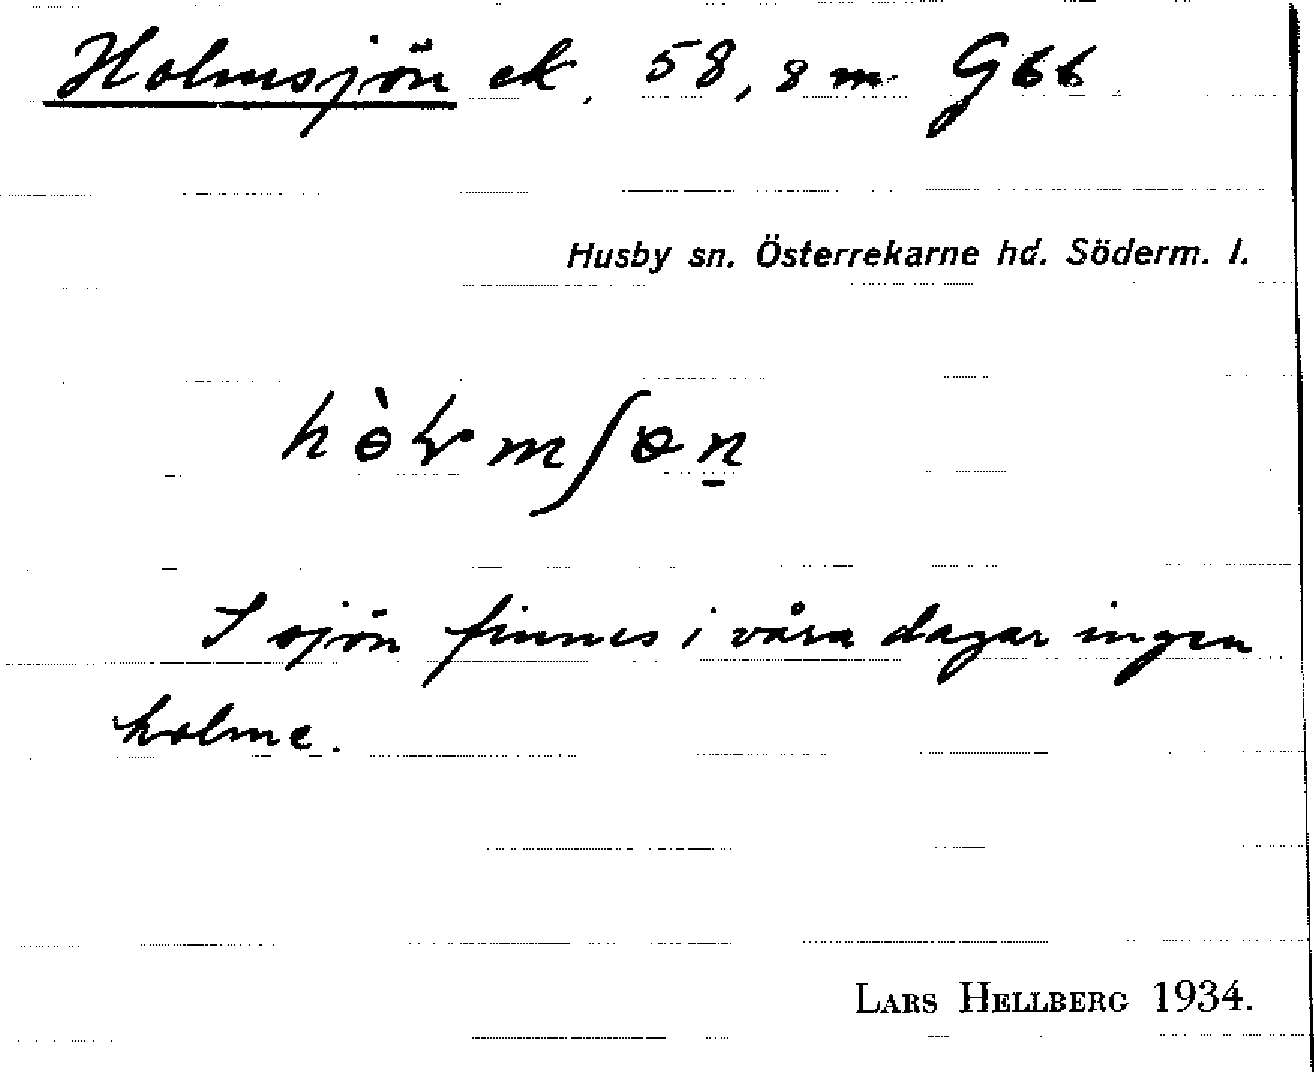 Holmsjön ek. 58,8 m G6b
Husby sn. Österrekarne hd. Söderm. l.
I sjön finnes i våra dagar ingen
holme.
LARS HELLBERG 1934.